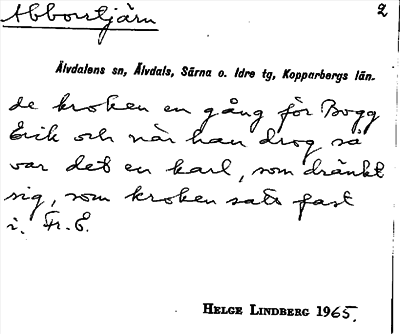 Abborrtjärn
2
Älvdalens sn, Älvdals, Särna o. Idre tg, Kopparbergs län.
de kroken en gång för Bogg
Erik och när han drog så
var det en karl, som dränkt
sig, som kroken satt fast
i. Fr. E.
HELGE LINDBERG 1965.